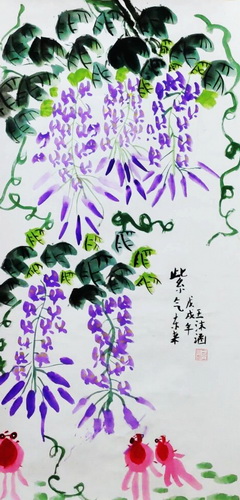 紫气东来
戊戌年
王沐涵